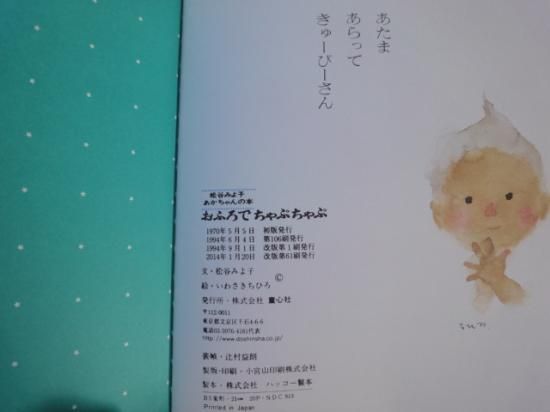 あたま
あらって
きゅーぴーさん
松谷みよ子
あかちゃんの本
おふろでちゃぷちゃぷ
1970年5月5日 初版発行
1994年6月4日 第106刷発行
1994年9月1日 改版第1刷発行
2014年1月20日 改版第61刷発行
文・松谷みよ子
絵・いわさきちひろ
©
発行所・株式会社 童心社
〒112-0011
東京都文京区千石4-6-6
電話03-5976-4181代表
http://www.doshinsha.co.jp/
装幀・辻村益朗
製版・印刷・小宮山印刷株式会社
製本・株式会社 ハッコー製本
B5変形・21cm 20P・NDC 913
Printed in Japan
ちひろ